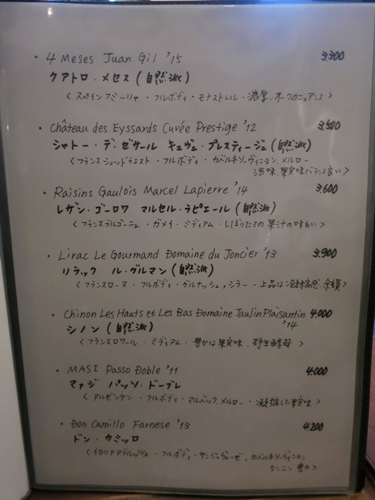 • 4 Meses Juan Gil '15 3.300
クアトロ・メセス (自然派)
< スペイン フミーリャ・フルボディ・モナストレル・濃厚、オークのニュアンス >
• Château des Eyssards Cuvée Prestige '12 3.500
シャトー・デ・ゼサール キュヴェ・プレスティージュ (自然派)
< フランス シュッドウエスト・フルボディ・カベルネソーヴィニヨン メルロー
渋味、果実味バランス良い >
• Raisins Gaulois Marcel Lapierre '14 3.600
レザン・ゴーロワ マルセル・ラピエール (自然派)
< フランス ブルゴーニュ・ガメイ・ミディアム・しぼりたての果汁の味わい >
• Lirac Le Gourmand Domaine du Joncier '13 3.900
リラック ル・グルマン (自然派)
< フランス ローヌ・フルボディ・グルナッシュ、シラー・上品な凝縮感、余韻 >
• Chinon Les Hauts et Les Bas Domaine Jaulin Plaisantin '14 4.000
シノン (自然派)
< フランス ロワール・ミディアム・豊かな果実味、野生酵母 >
• MASI Passo Doble '11 4.000
マァジ パッソ・ドーブレ
< アルゼンチン・フルボディ・マルベック、メルロー・凝縮した果実味 >
• Don Camillo Farnese '13 4.200
ドン・カミッロ
< イタリア アブルッツォ・フルボディ・サンジョヴェーゼ、カベルネソーヴィニヨン
タンニン 豊か >